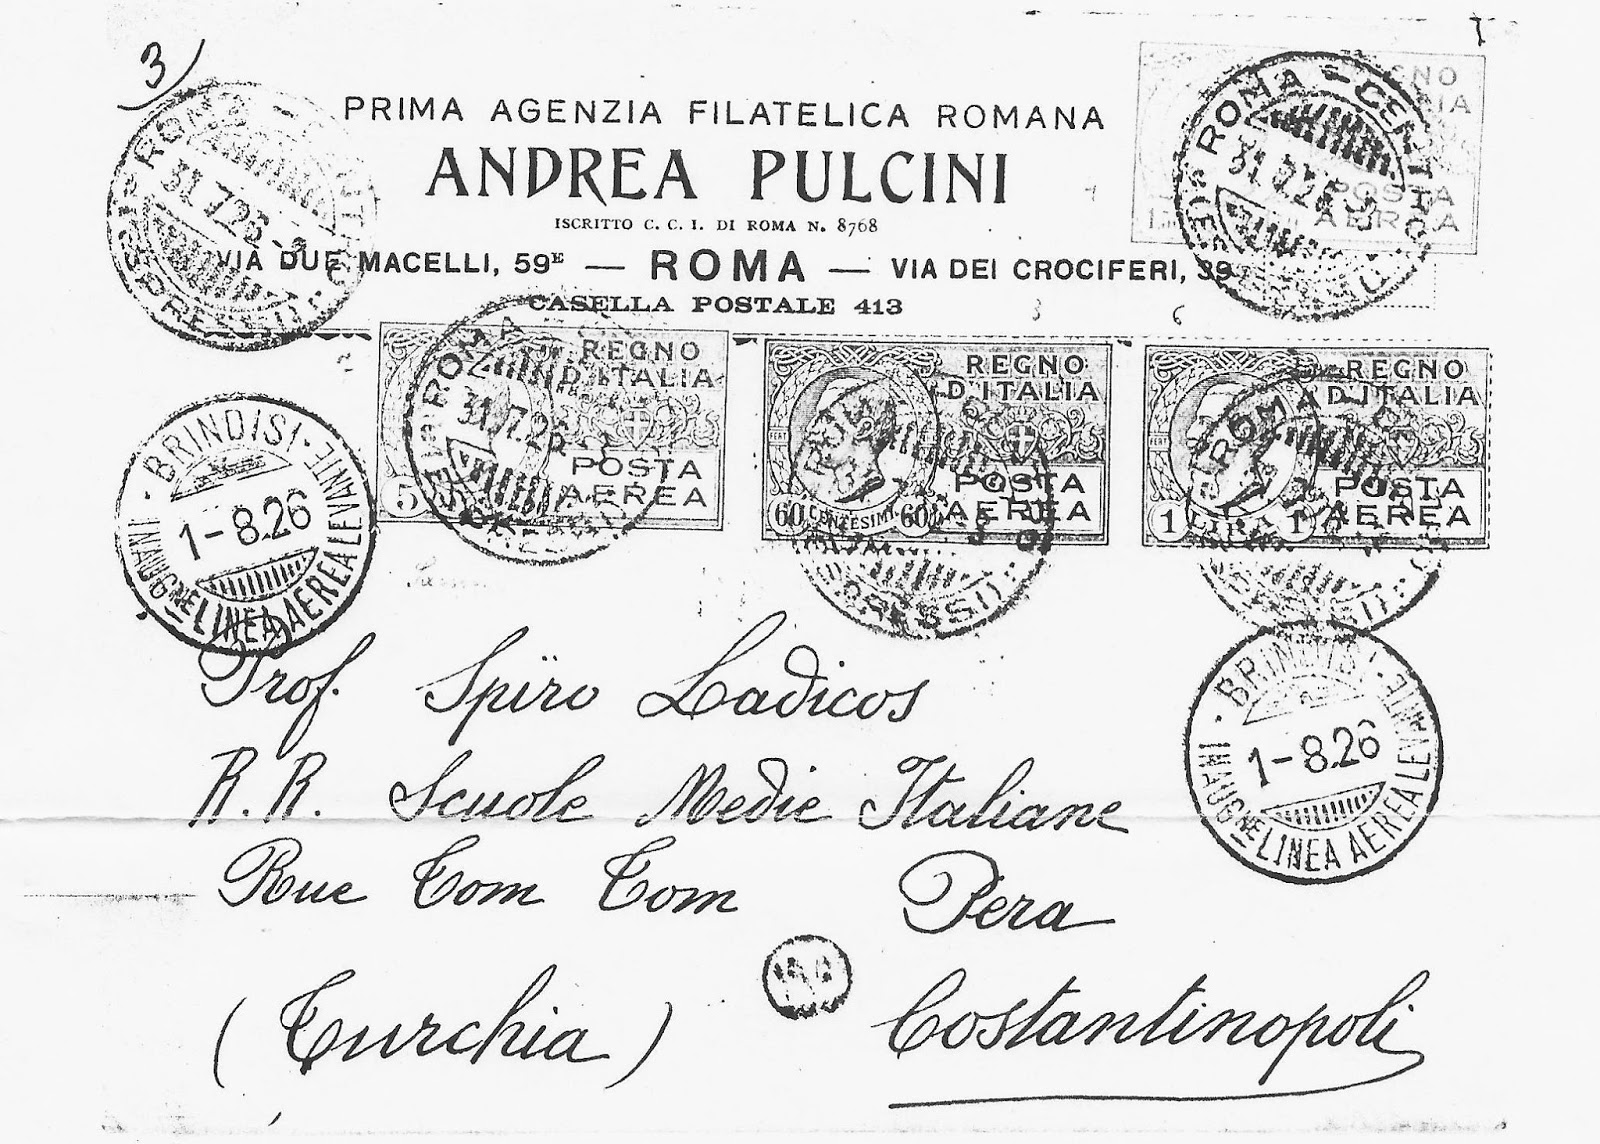 3
PRIMA AGENZIA FILATELICA ROMANA
ANDREA PULCINI
ISCRITTO C. C. I. DI ROMA N. 8768
VIA DUE MACELLI, 59E — ROMA — VIA DEI CROCIFERI, 39
CASELLA POSTALE 413
ROMA - CENTRO
POSTA
AEREA
ROMA
31.7.26
REGNO
D'ITALIA
POSTA
AEREA
5
REGNO
D'ITALIA
POSTA
AEREA
60 CENTESIMI 60
REGNO
D'ITALIA
POSTA
AEREA
1 LIRA 1
BRINDISI
1-8.26
INAUGNE LINEA AEREA LEVANTE
Prof. Spïro Ladicos
R. R. Scuole Medie Italiane
Rue Tom Tom Pera
(Turchia) Costantinopoli
BRINDISI
1-8.26
INAUGNE LINEA AEREA LEVANTE